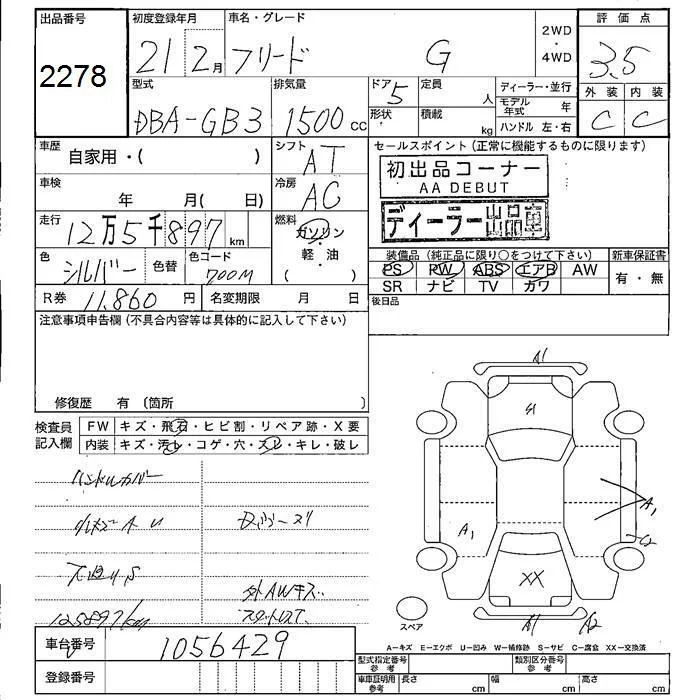 出品番号 初度登録年月 車名・グレード 2WD・4WD 評価点
2278 21 2月 フリード G 3.5
型式 排気量 ドア 定員 ディーラー・並行 外装 内装
DBA-GB3 1500cc 5 人 モデル年式 年 C C
形状 積載 kg ハンドル 左・右
車歴 自家用・( ) シフト AT セールスポイント(正常に機能するものに限ります)
初出品コーナー
AA DEBUT
車検 年 月( 日) 冷房 AC
ディーラー出品車
走行 12万5千897km 燃料 ガソリン・軽・油 ( )
色 シルバー 色替 色コード 700M
装備品(純正品に限り○をつけて下さい) 新車保証書
PS PW ABS エアB AW 有・無
SR ナビ TV カワ
R券 11,860円 名変期限 月 日 後日品
注意事項申告欄(不具合内容等は具体的に記入して下さい)
修復歴 有 〔箇所 〕
検査員記入欄 FW キズ・飛石・ヒビ割・リペア跡・X要
内装 キズ・汚レ・コゲ・穴・スレ・キレ・破レ
ハンドルカバー
外AWキズ
スタットレス
125897km
A1
A1
A1
XX
スペア
A1 A2
車台番号 1056429
A―キズ E―エクボ U―凹み W―補修跡 S―サビ C―腐食 XX―交換済
型式指定番号 参考 類別区分番号 参考
登録番号 車庫証明用参考 長さ cm 幅 cm 高さ cm